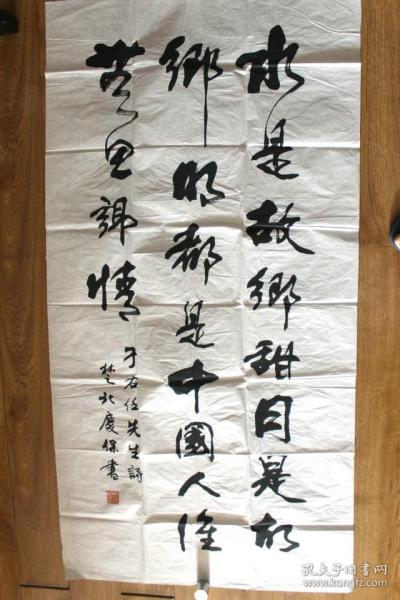 水是故鄉甜月是故
鄉明都是中國人誰
無思鄉情
于右任先生詩
楚北慶保書
孔夫子旧书网
kongfz.com